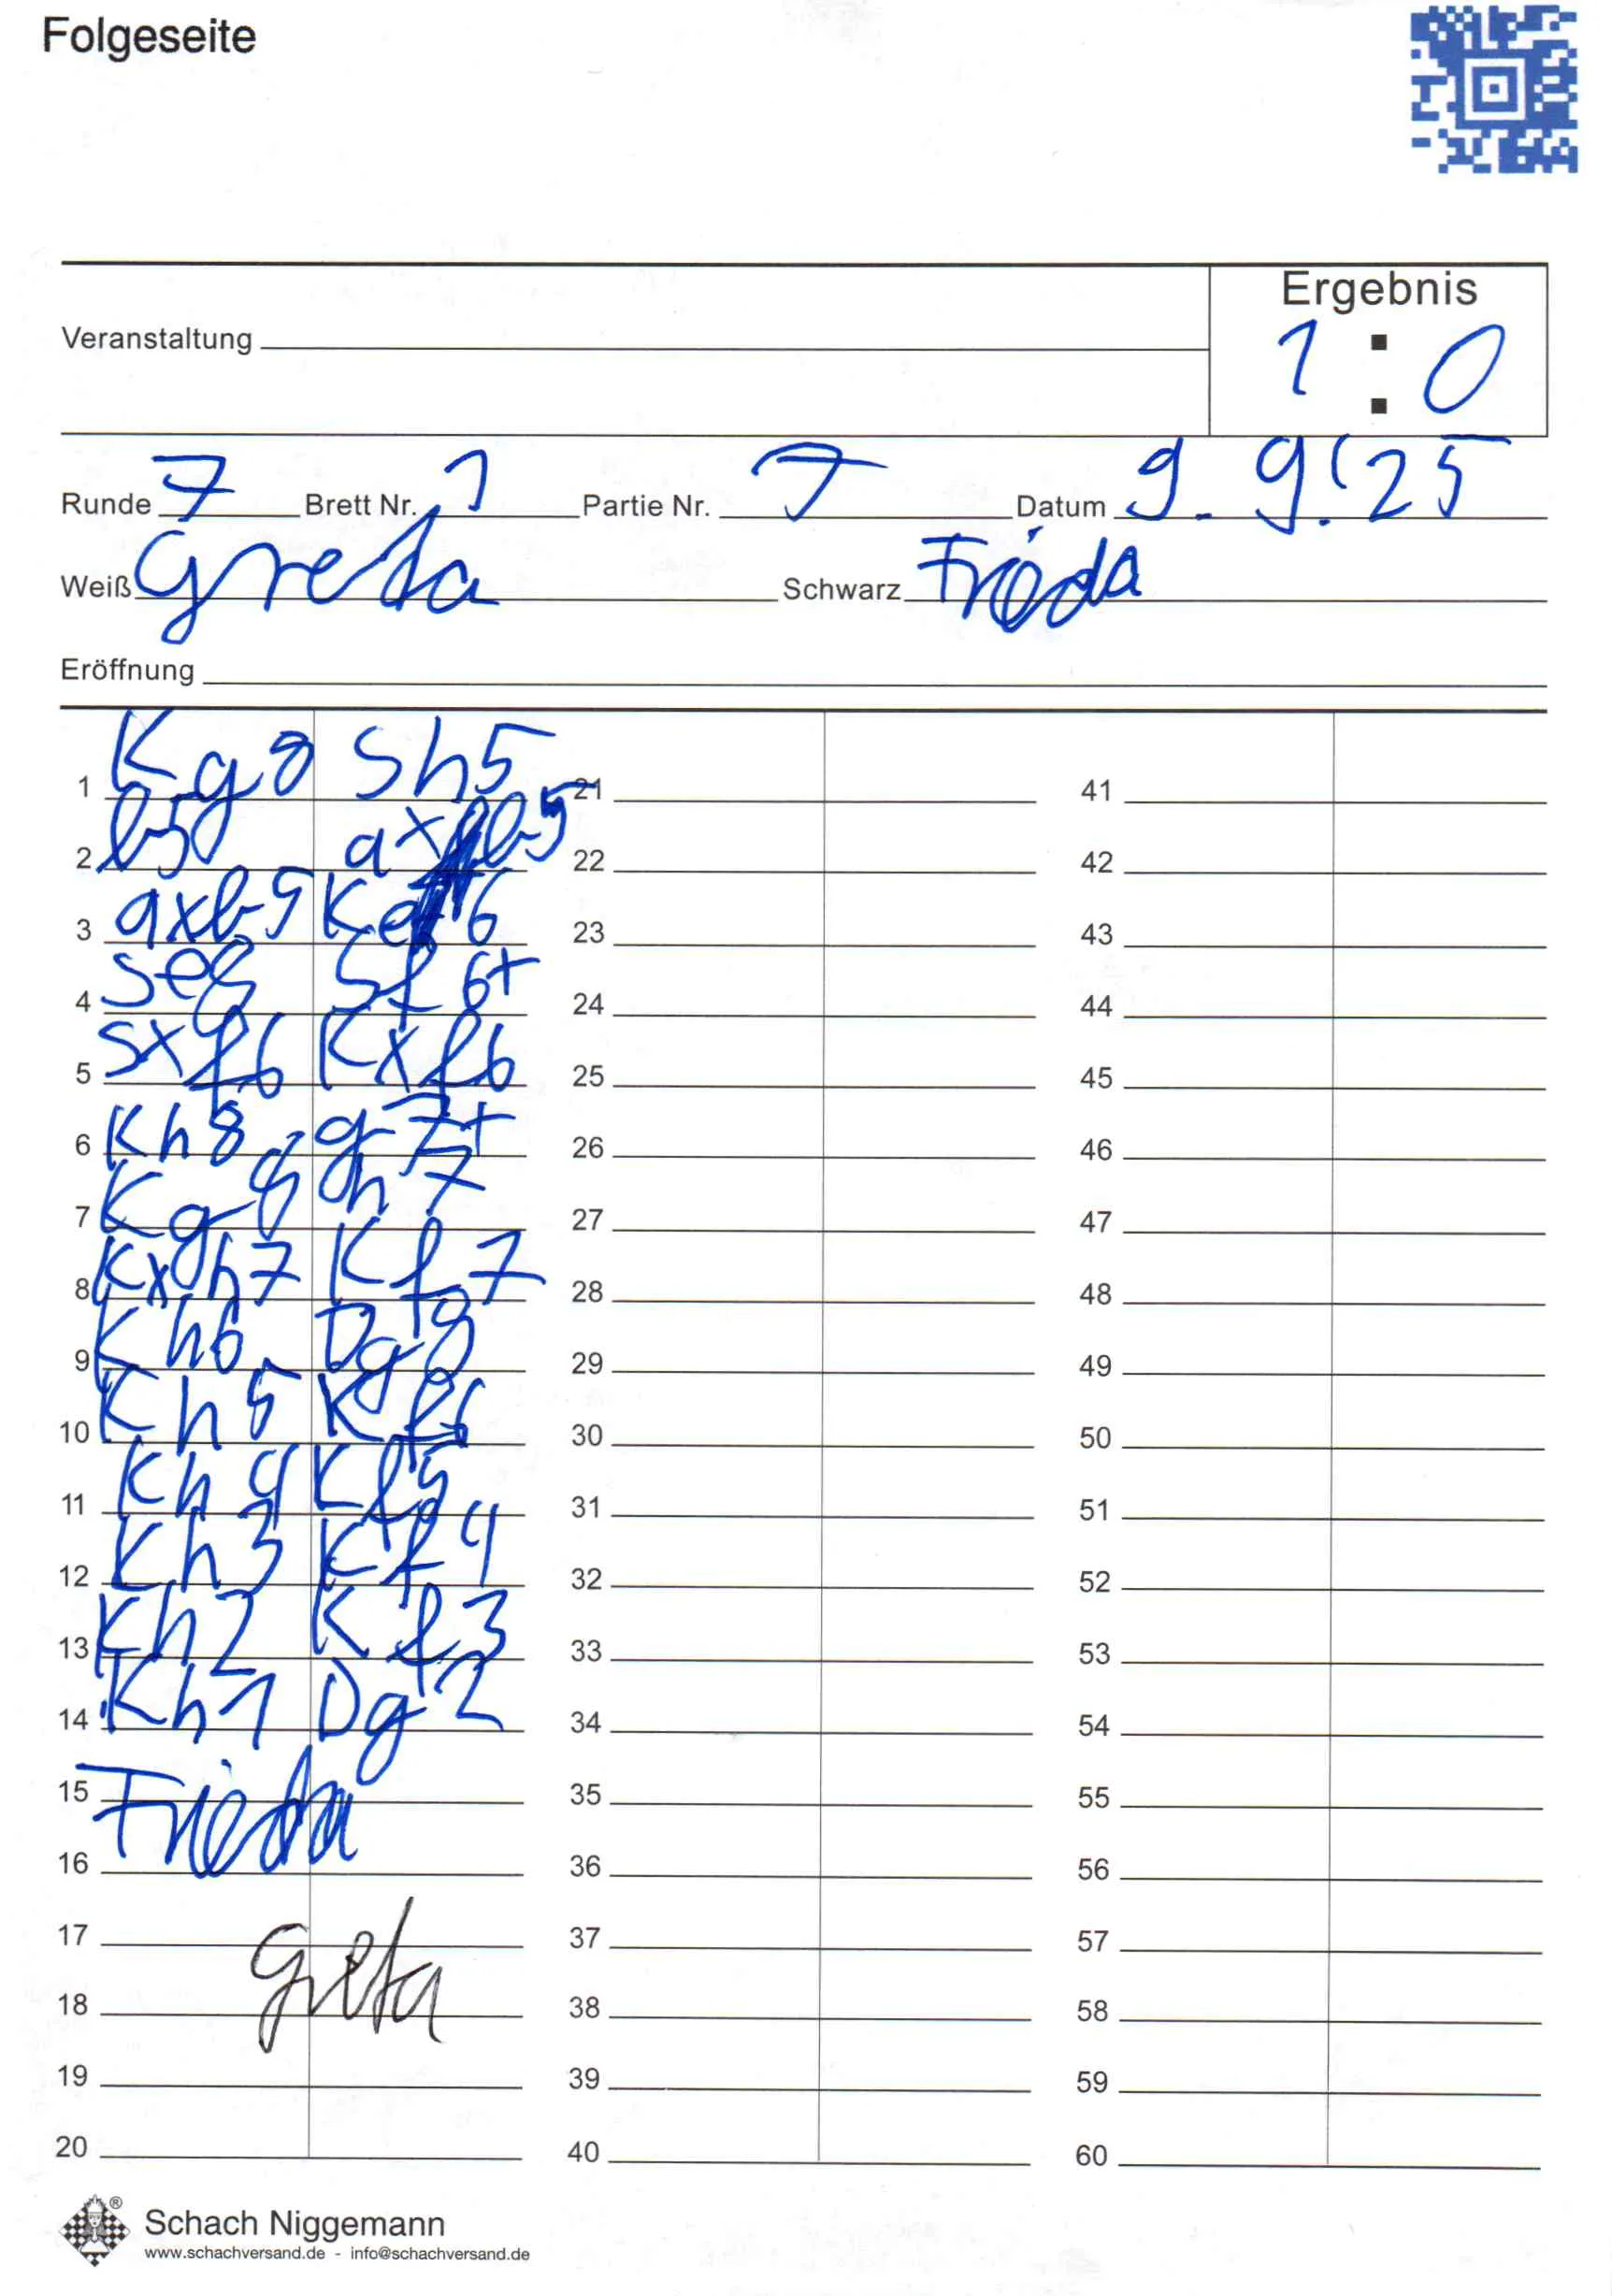 Folgeseite
Ergebnis
Veranstaltung
1 : 0
Runde 7 Brett Nr. 1 Partie Nr. 7 Datum 9. 9. 25
Weiß Greta Schwarz Frieda
Eröffnung
1 Kg8 Sh5 21 41
2 b5 axb5 22 42
3 axb5 Ke6 23 43
4 Se8 Sf6+ 24 44
5 Sxf6 Kxf6 25 45
6 Kh8 g7+ 26 46
7 Kg8 h7 27 47
8 Kxh7 Kf7 28 48
9 Kh6 Dg8 29 49
10 Kh5 Kf6 30 50
11 Kh4 Kf5 31 51
12 Kh3 Kf4 32 52
13 Kh2 Kf3 33 53
14 Kh1 Dg2 34 54
15 Frieda 35 55
16 36 56
17 Greta 37 57
18 38 58
19 39 59
20 40 60
Schach Niggemann
www.schachversand.de - info@schachversand.de